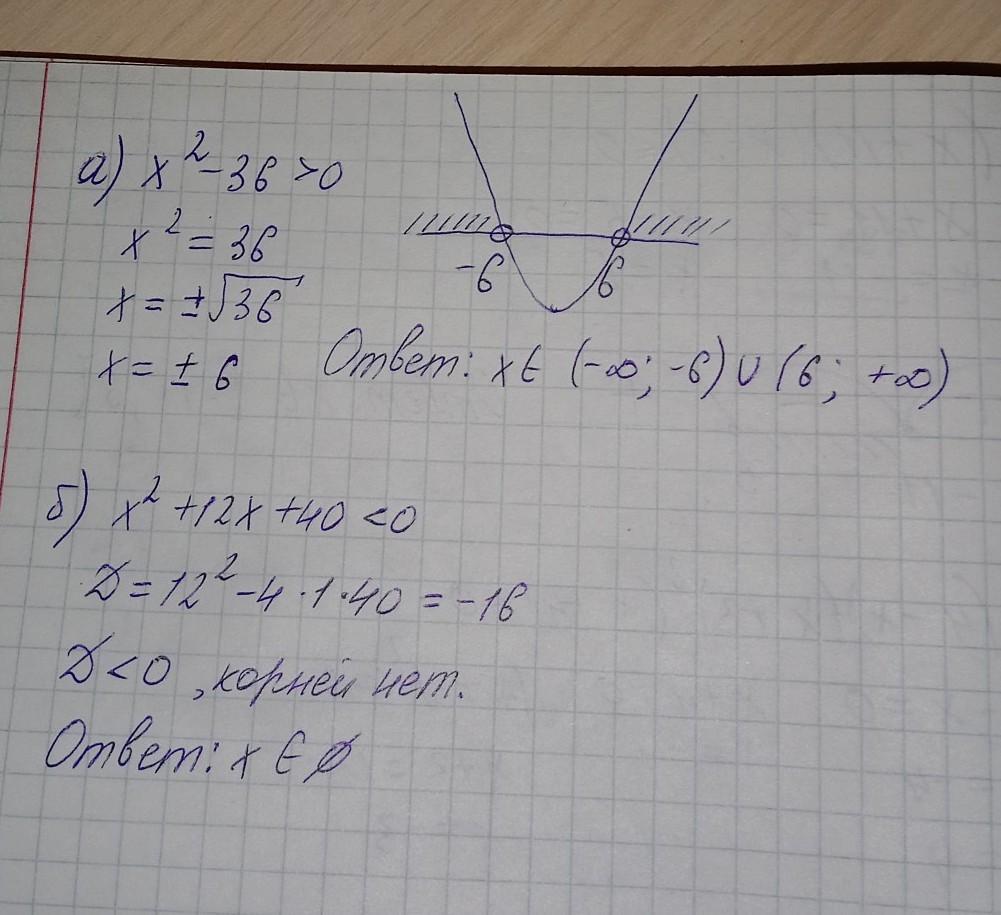 а) x² - 36 > 0
x² = 36
x = ±√36
x = ± 6
-6 6
Ответ: x ∈ (-∞; -6) ∪ (6; +∞)
б) x² + 12x + 40 < 0
D = 12² - 4 · 1 · 40 = -16
D < 0, корней нет.
Ответ: x ∈ ∅